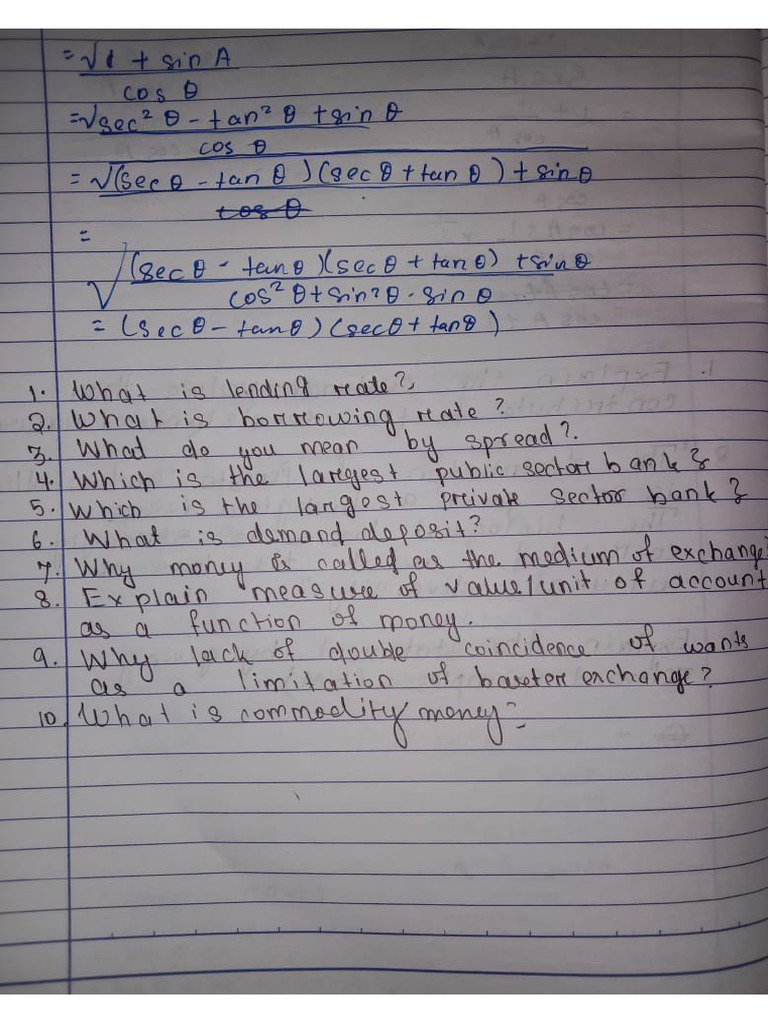 = √1 + sin A
cos θ
= √sec² θ - tan² θ + sin θ
cos θ
= √(sec θ - tan θ) (sec θ + tan θ) + sin θ
cos θ
=
√(sec θ - tan θ)(sec θ + tan θ) + sin θ
cos² θ + sin² θ · sin θ
= (sec θ - tan θ) (sec θ + tan θ)
1. What is lending rate?
2. What is borrowing rate?
3. What do you mean by spread?
4. Which is the largest public sector bank?
5. Which is the largest private sector bank?
6. What is demand deposit?
7. Why money is called as the medium of exchange?
8. Explain measure of value/unit of account
as a function of money.
9. Why lack of double coincidence of wants
as a limitation of barter exchange?
10. What is commodity money?